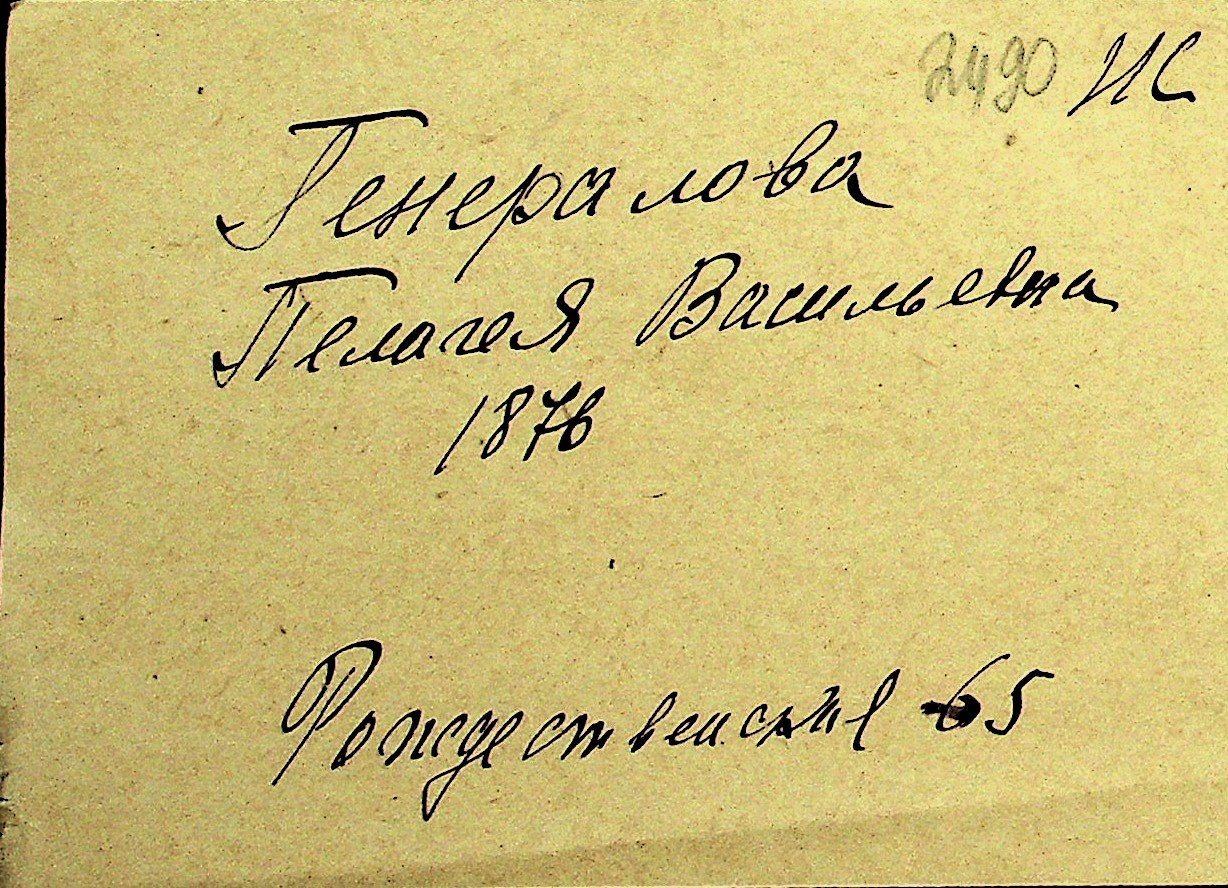 2490 ИС
Генералова
Пелагея Васильевна
1876
Рождественские 65